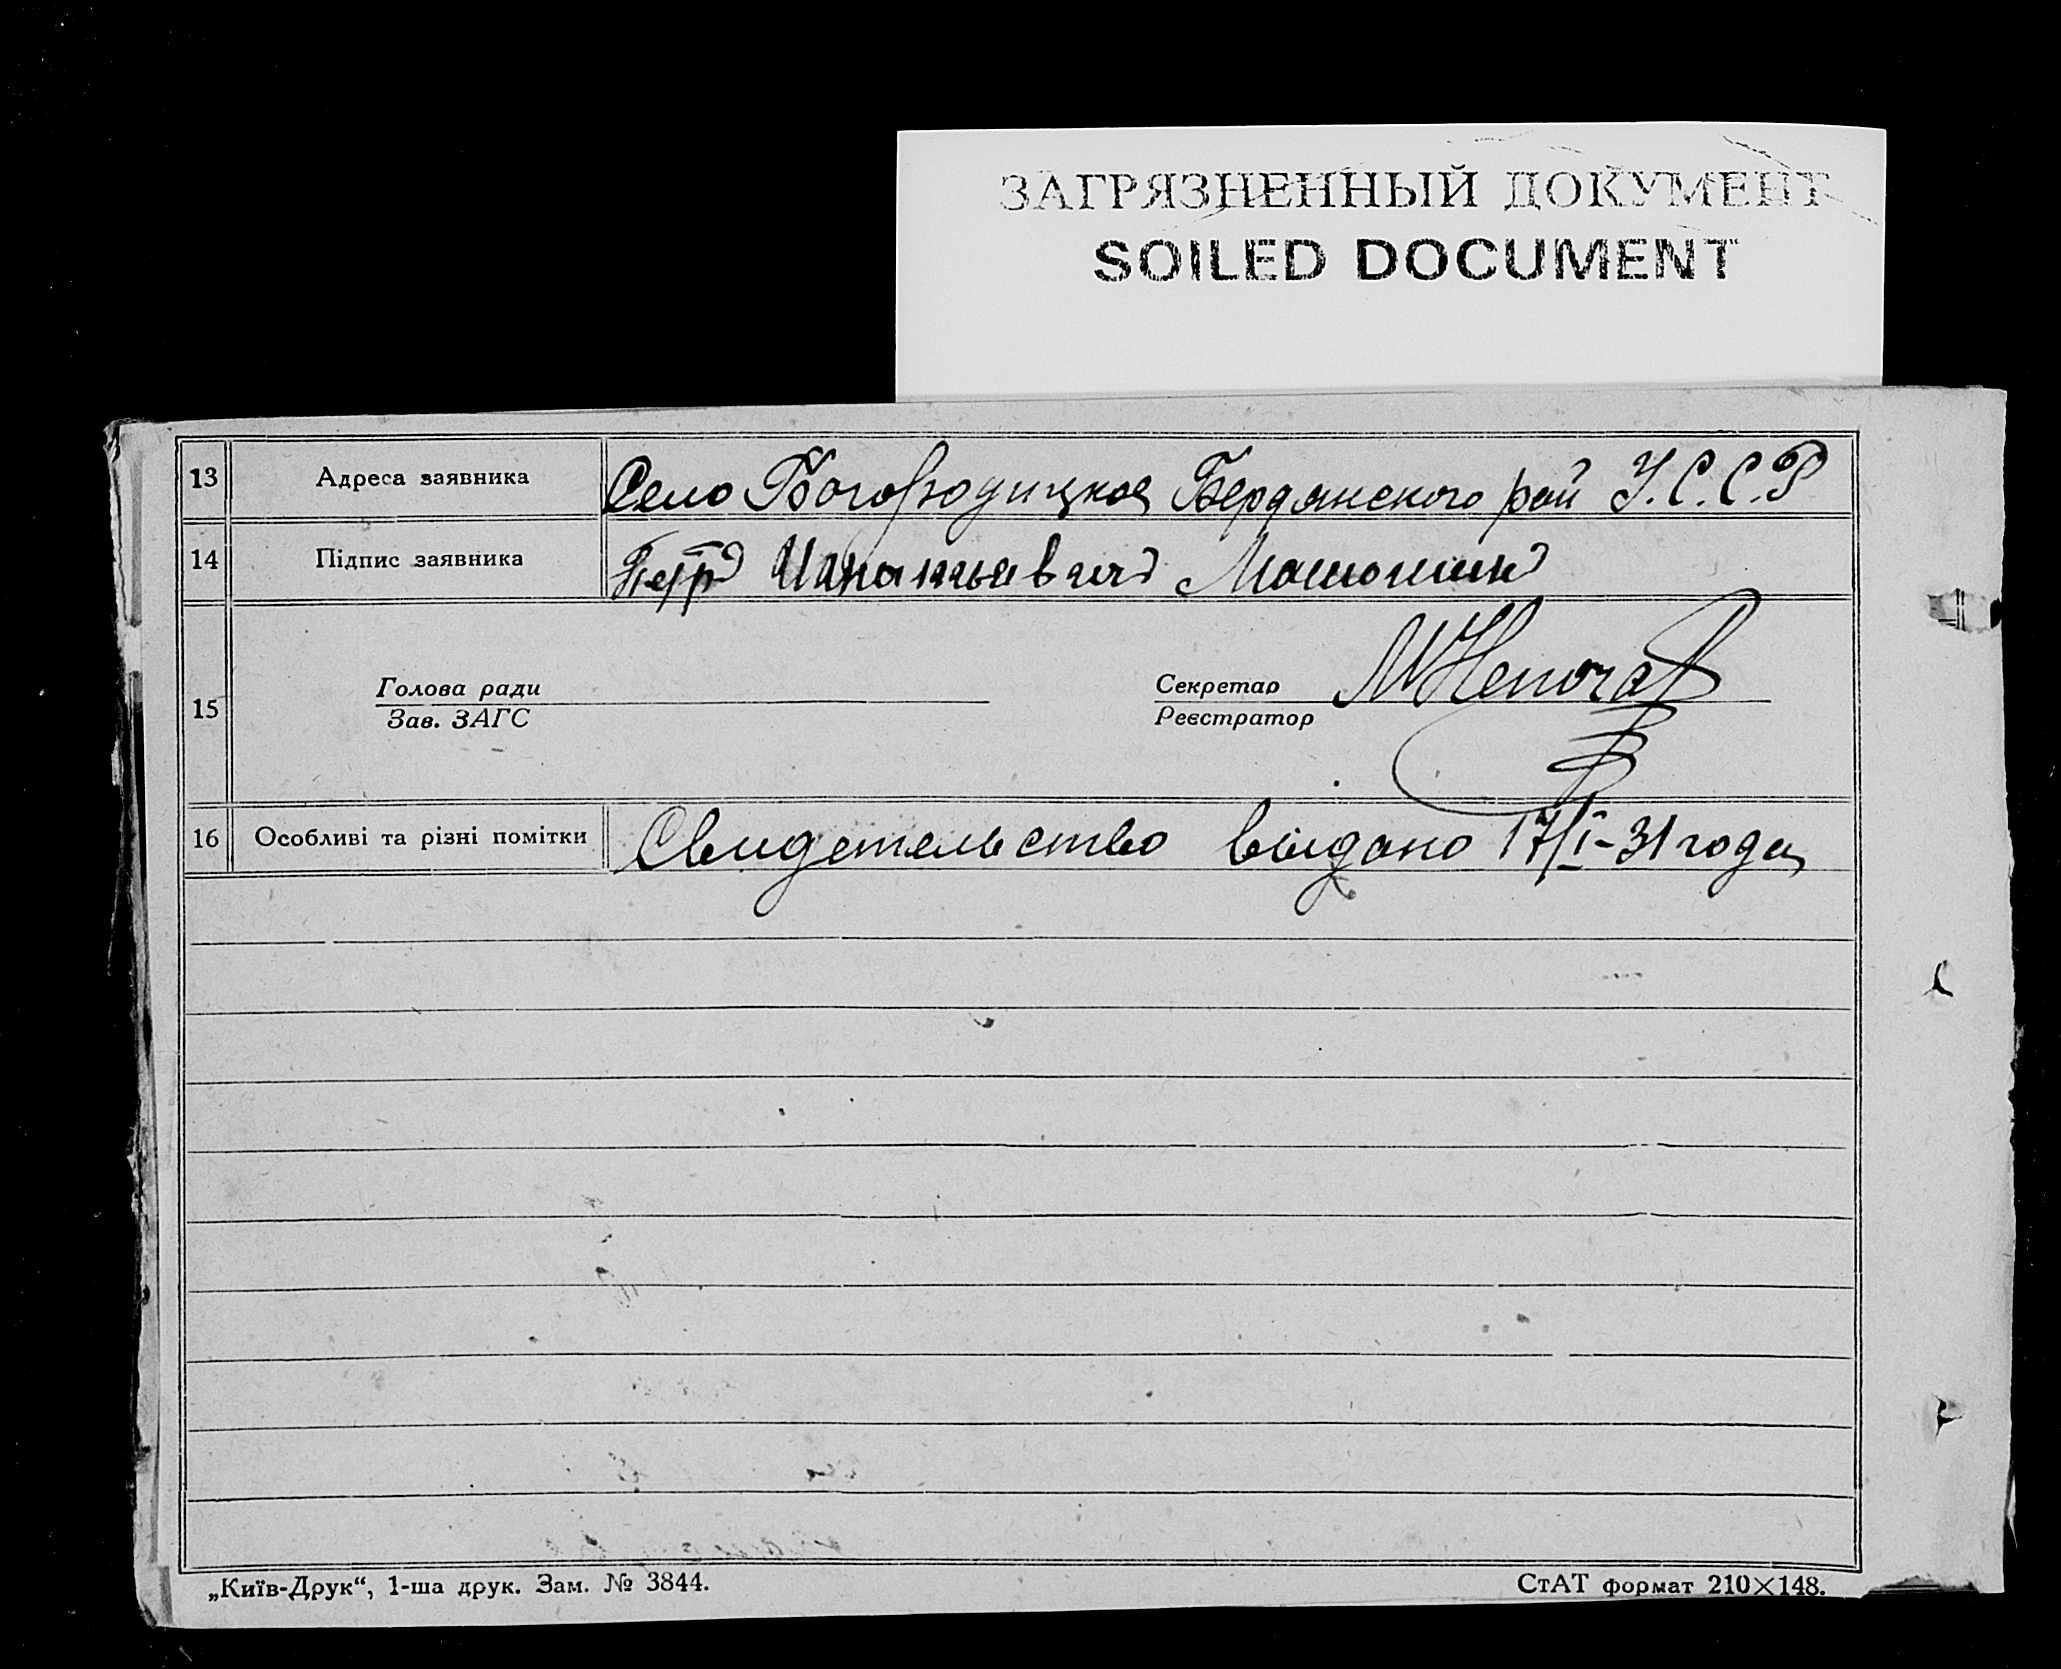 ЗАГРЯЗНЕННЫЙ ДОКУМЕНТ
SOILED DOCUMENT
13 Адреса заявника Село Богородицкое Бердянского рай У.С.С.Р
14 Підпис заявника Петр Игнатьевич
15 Голова ради Секретар
Зав. ЗАГС Реєстратор
16 Особливі та різні помітки Свидетельство видано 17/I-31 года
„Київ-Друк“, 1-ша друк. Зам. № 3844. СтАТ формат 210×148.